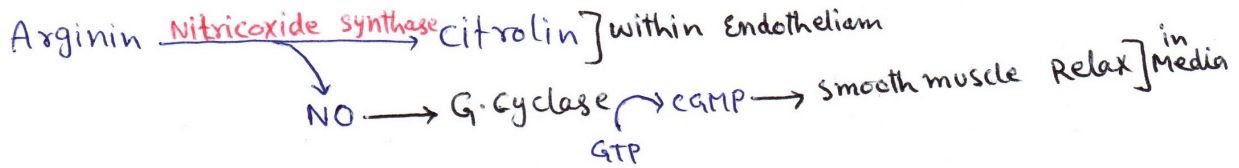 Arginin Nitricoxide synthase citrolin ] within Endotheliam
NO → G.cyclase → cGMP → smooth muscle Relax ] in Media
GTP